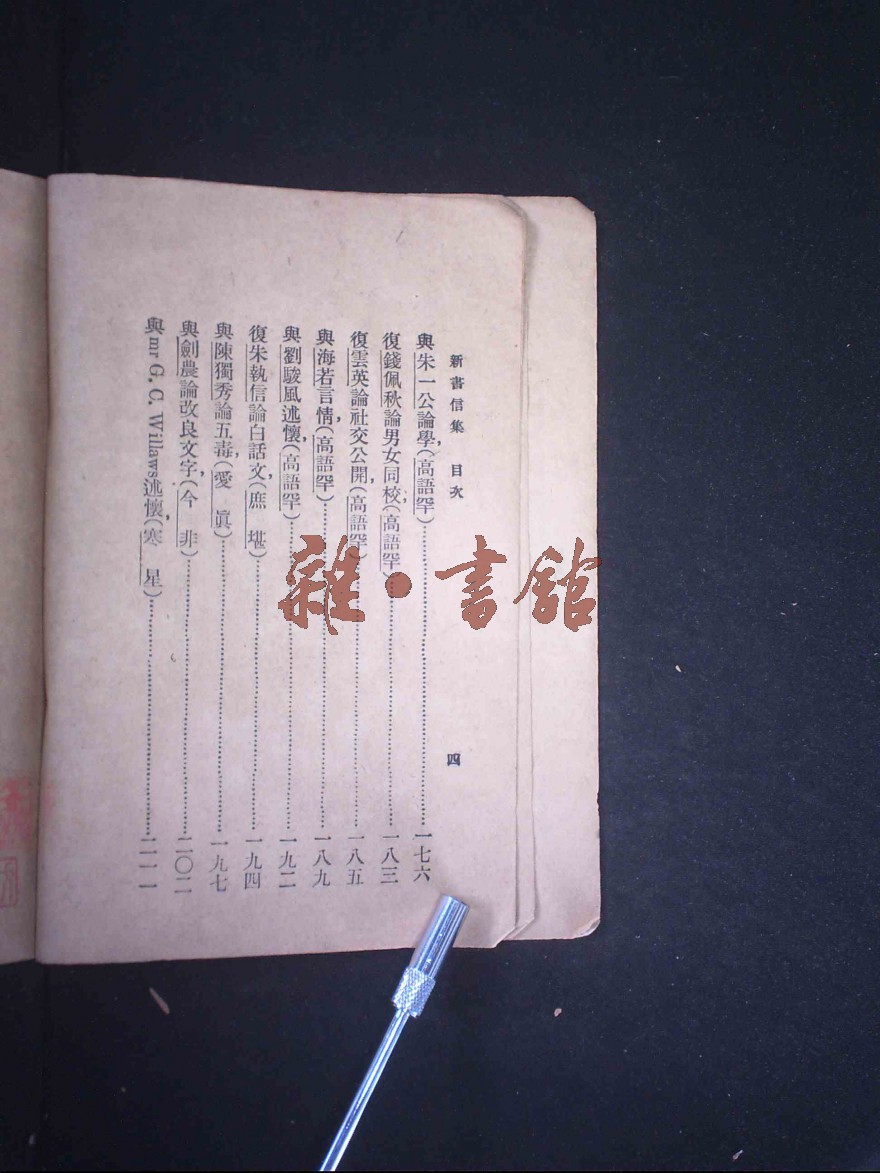 新書信集 目次 四
與朱一公論學，(高語罕)……一七六
復錢佩秋論男女同校，(高語罕)……一八三
復雲英論社交公開，(高語罕)……一八五
與海若言情，(高語罕)……一八九
與劉駿風述懷，(高語罕)……一九二
復朱執信論白話文，(庶堪)……一九四
與陳獨秀論五毒，(愛眞)……一九七
與劍農論改良文字，(今非)……二〇二
與mr G. C. Willaws述懷，(寒星)……二一一
雜·書館